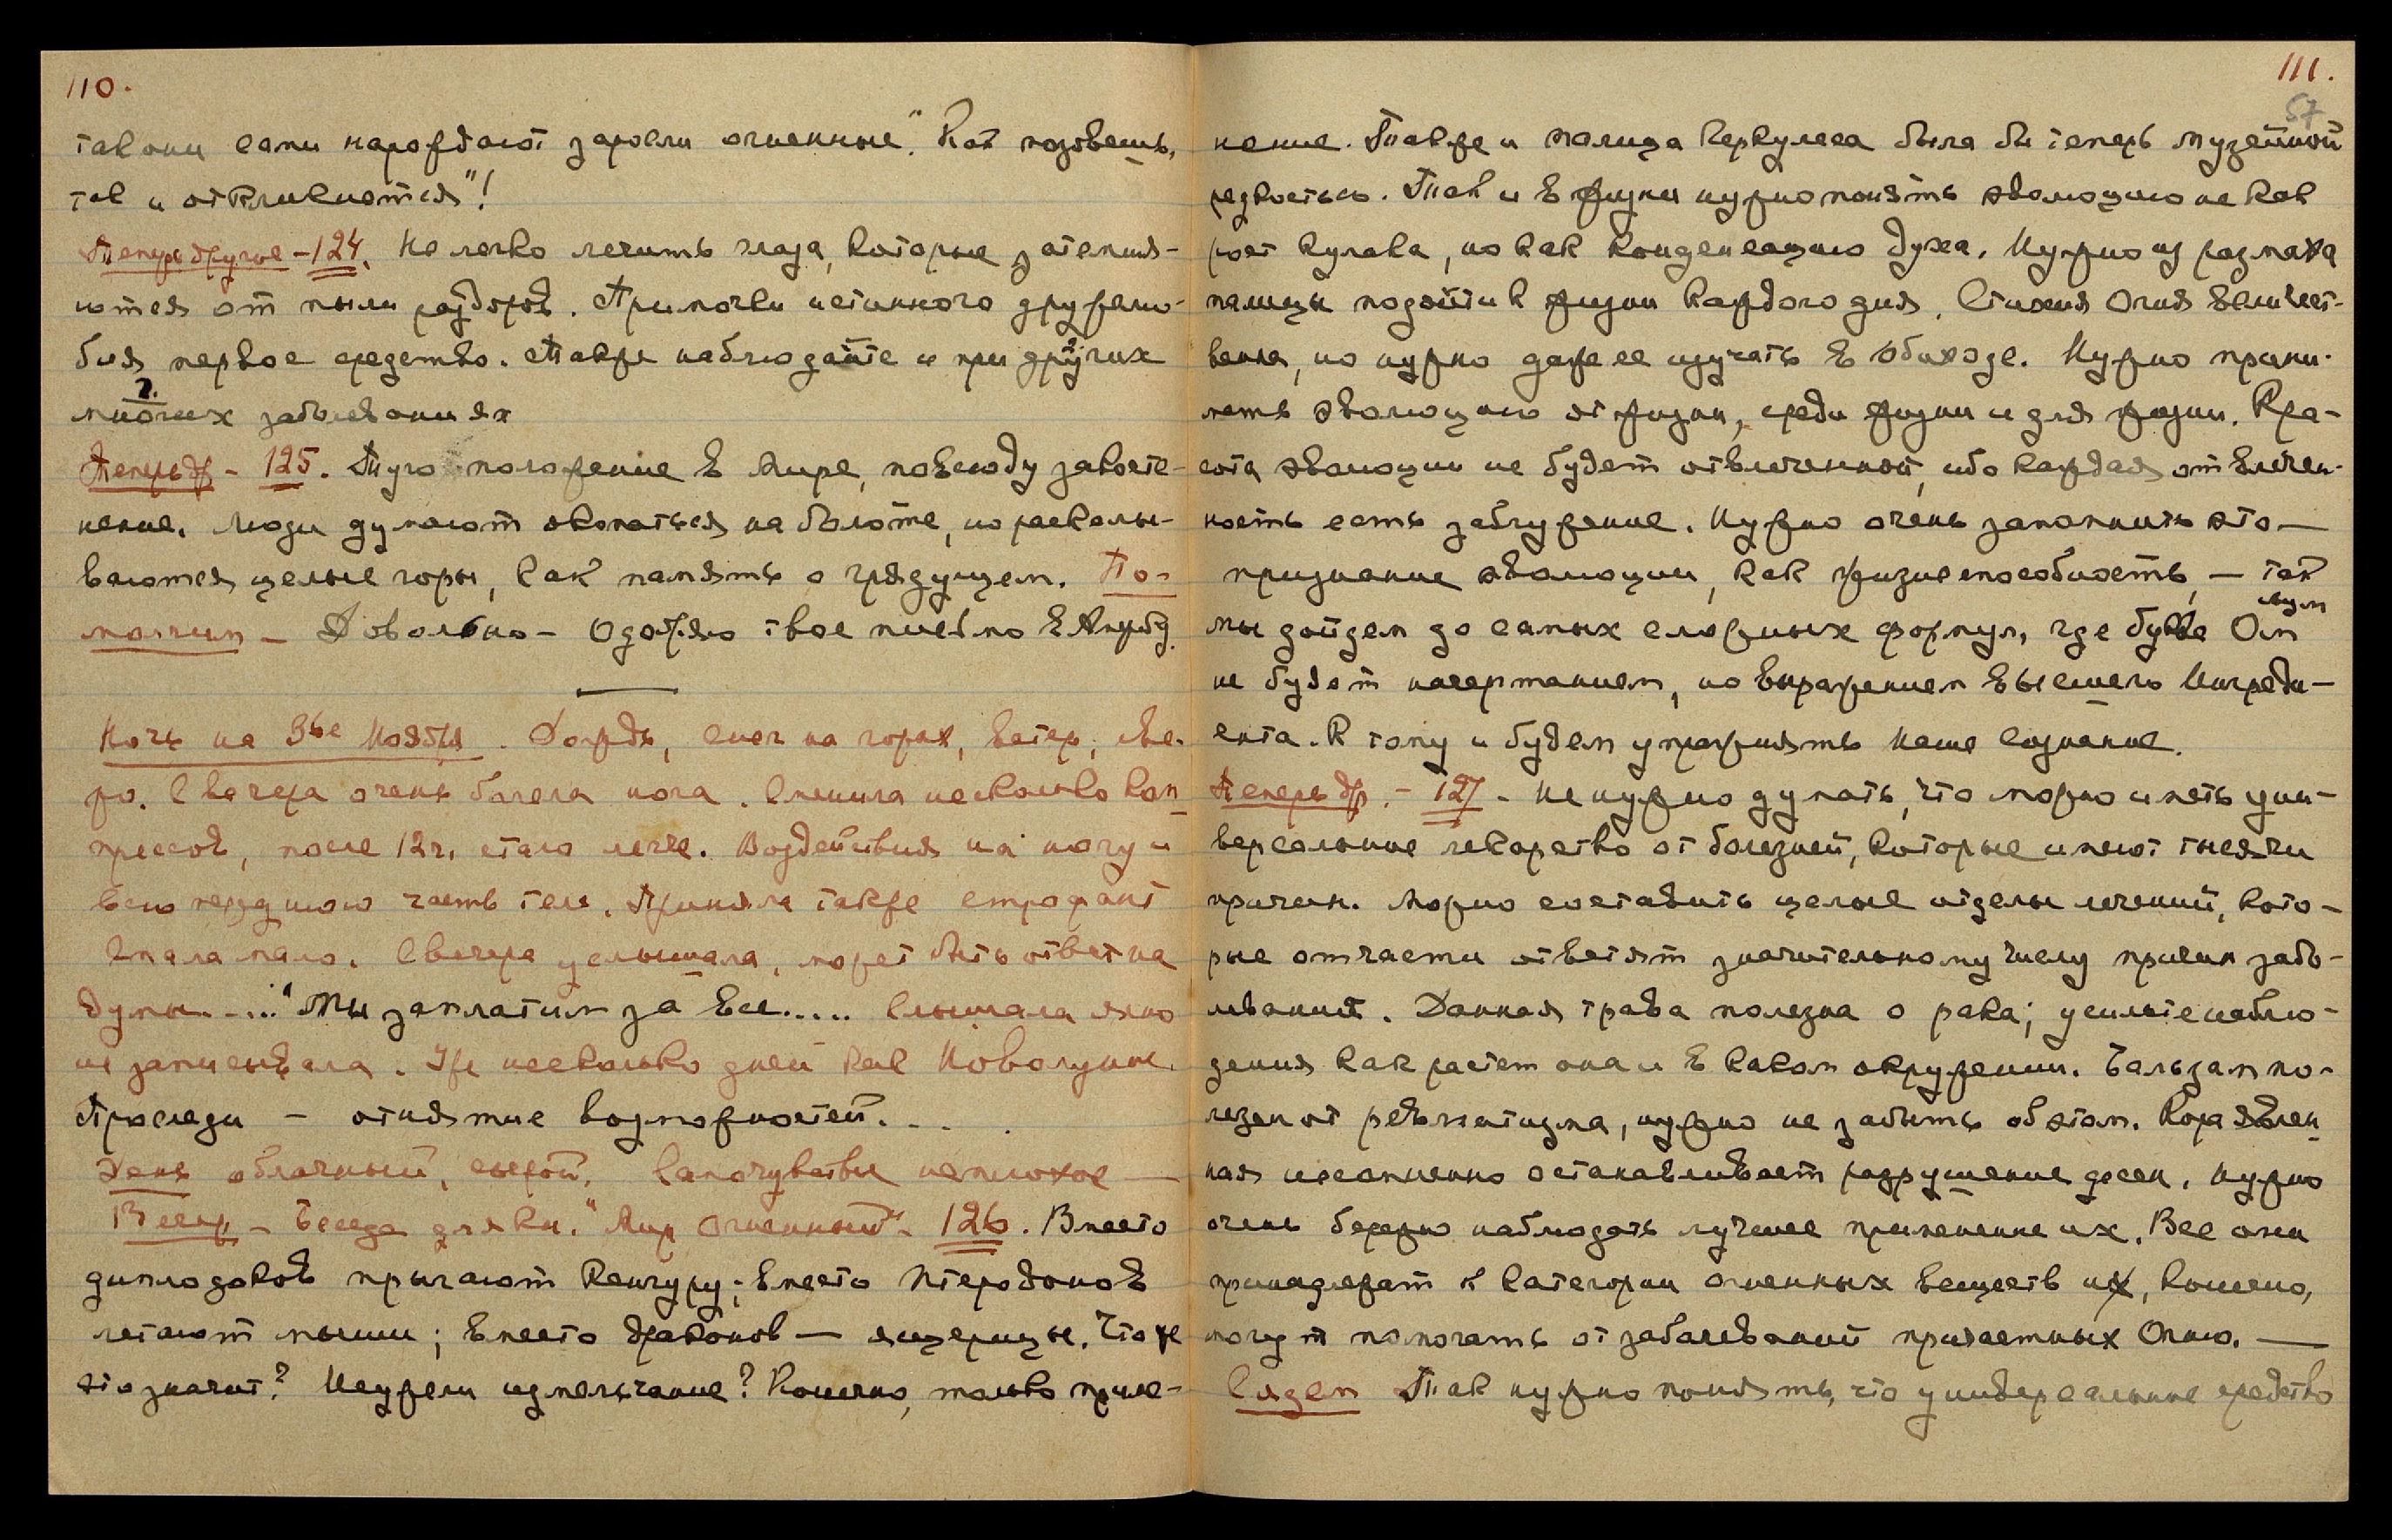 110.
так они сами нарождают заросли огненные". Как позовешь,
так и откликнется"!
Теперь другое – 124. Не легко лечить глаза, которые затемня-
ются от пыли раздоров. Примочки истинного дружелю-
бия первое средство. Также наблюдайте и при других
многих заболеваниях
Теперь др – 125. Туго положение в Мире, повсюду закосте-
нение. Люди думают окопаться на болоте, но раскалы-
ваются целые горы, как память о грядущем. По-
молчим – Довольно – Одолжаю твое письмо
Ночь на 3ье Ноября. Дождь, снег на горах, ветер, све-
жо. С вечера очень болела нога. Сменила несколько ком-
прессов, после 12ч. стало легче. Воздействия на ногу и
всю переднюю часть тела. Приняла также строфант
Спала мало. С вечера услышала, может быть ответ на
думы....." Мы заплатим за все..... Слышала ясно
не записывала. Уже несколько дней как Новолуние.
Проследи – отнятие возможностей....
День облачный, сырой. Самочувствие неплохое —
Вечер – Беседа для кн. "Мир Огненный" – 126. Вместо
диплодоков прыгают кенгуру; вместо птеродонов
летают мыши; вместо драконов — ящерицы. Что же
это значит? Неужели измельчание? Конечно, только приме-
111.
57
нение. Также и палица Геркулеса была бы теперь музейной
редкостью. Так и в жизни нужно понять эволюцию не как
рост кулака, но как конденсацию духа. Нужно из размаха
палицы подойти к жизни каждого дня. Стихия Огня величест-
венна, но нужно даже ее изучать в обиходе. Нужно прини-
мать эволюцию от жизни, среди жизни и для жизни. Кра-
сота эволюции не будет отвлеченной, ибо каждая отвлечен-
ность есть заблуждение. Нужно очень запомнить это —
признание эволюции, как жизнеспособность, — так
мы дойдем до самых сложных формул, где буква
не будет начертанием, но выражением высшего Ингреди-
ента. К тому и будем упражнять наше сознание.
Теперь др. – 127 – Не нужно думать, что можно иметь уни-
версальные лекарство от болезней, которые имеют тысячи
причин. Можно составить целые отделы лечений, кото-
рые отчасти ответят значительному числу причин забо-
леваний. Данная трава полезна о рака; усильте наблю-
дения как растет она и в каком окружении. Бальзам по-
лезен от ревматизма, нужно не забыть об этом. Кора явлен-
ная несомненно останавливает разрушение десен. Нужно
очень бережно наблюдать лучшее применение их. Все они
принадлежат к категории огненных веществ и, конечно,
могут помогать от заболеваний причастных Огню. —
Сядем Так нужно понять, что универсальные средство